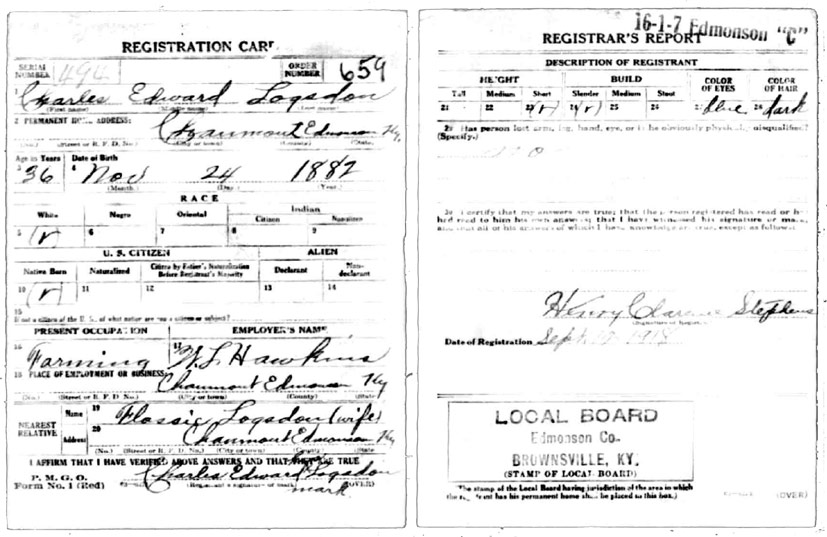 REGISTRATION CARD
SERIAL NUMBER 494 ORDER NUMBER 659
1 Charles Edward Logsdon
(First name) (Middle name) (Last name)
2 PERMANENT HOME ADDRESS:
Chaumont Edmonson Ky.
(No.) (Street or R. F. D. No.) (City or town) (County) (State)
Age in Years Date of Birth
3 36 4 Nov 24 1882
(Month) (Day) (Year)
RACE
White Negro Oriental Indian
Citizen Noncitizen
5 (v) 6 7 8 9
U. S. CITIZEN ALIEN
Native Born Naturalized Citizen by Father's Naturalization Before Registrant's Majority Declarant Non-declarant
10 (v) 11 12 13 14
15
If not a citizen of the U. S., of what nation are you a citizen or subject?
PRESENT OCCUPATION EMPLOYER'S NAME
16 Farming 17 W. L. Hawkins
18 PLACE OF EMPLOYMENT OR BUSINESS:
Chaumont Edmonson Ky
(No.) (Street or R. F. D. No.) (City or town) (County) (State)
NEAREST RELATIVE Name 19 Flossie Logsdon (wife)
Address 20 Chaumont Edmonson Ky
(No.) (Street or R. F. D. No.) (City or town) (County) (State)
I AFFIRM THAT I HAVE VERIFIED ABOVE ANSWERS AND THAT THEY ARE TRUE
P. M. G. O.
Form No. 1 (Red) Charles Edward Logsdon
(Registrant's signature or mark) (OVER)
mark
16-1-7 Edmonson "C"
REGISTRAR'S REPORT
DESCRIPTION OF REGISTRANT
HEIGHT BUILD COLOR OF EYES COLOR OF HAIR
Tall Medium Short Slender Medium Stout
21 22 23 (v) 24 (v) 25 26 27 blue 28 dark
29 Has person lost arm, leg, hand, eye, or is he obviously physically disqualified?
(Specify.)
no
30 I certify that my answers are true; that the person registered has read or has
had read to him his own answers; that I have witnessed his signature or mark,
and that all of his answers of which I have knowledge are true, except as follows:
Henry Clarence Stephens
(Signature of Registrar)
Date of Registration Sept. 1918
LOCAL BOARD
Edmonson Co.
BROWNSVILLE, KY.
(STAMP OF LOCAL BOARD)
(The stamp of the Local Board having jurisdiction of the area in which
the registrant has his permanent home shall be placed in this box.)
(OVER)